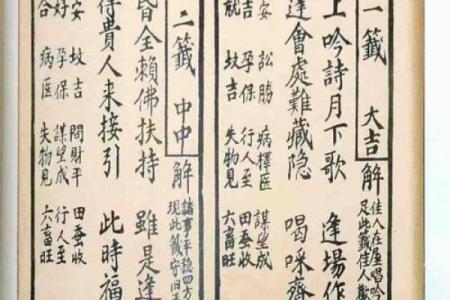 一籤 大吉 解 佳人在座唱吟
足此籤佳人歡
上吟詩月下歌 逢場作
逢會處難藏隐 喝咪齊
安 訟勝 病擇医 謀望成
孕保 行人至 田蚕收
就 坟吉 失物見 六畜旺
二籤 中中 解 諸事平稳四方
現此籤守旧
昏全賴佛扶持 雖是逢
得貴人来接引 此時福
安 坟吉 問財平 田蚕收
好 孕保 謀望成 行人至
合 病医 失物見 六畜旺